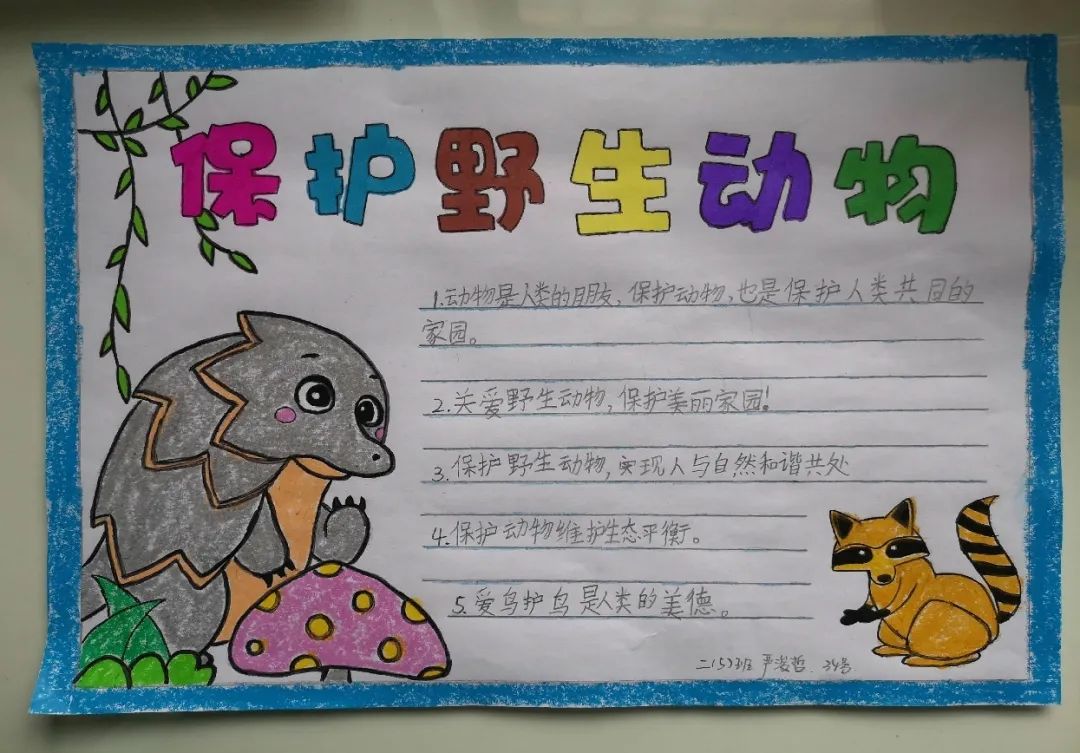 保护野生动物
1.动物是人类的朋友、保护动物,也是保护人类共同的
家园。
2.关爱野生动物,保护美丽家园!
3.保护野生动物,实现人与自然和谐共处
4.保护动物维护生态平衡。
5.爱鸟护鸟是人类的美德。
二(5)班 严浚哲 34号